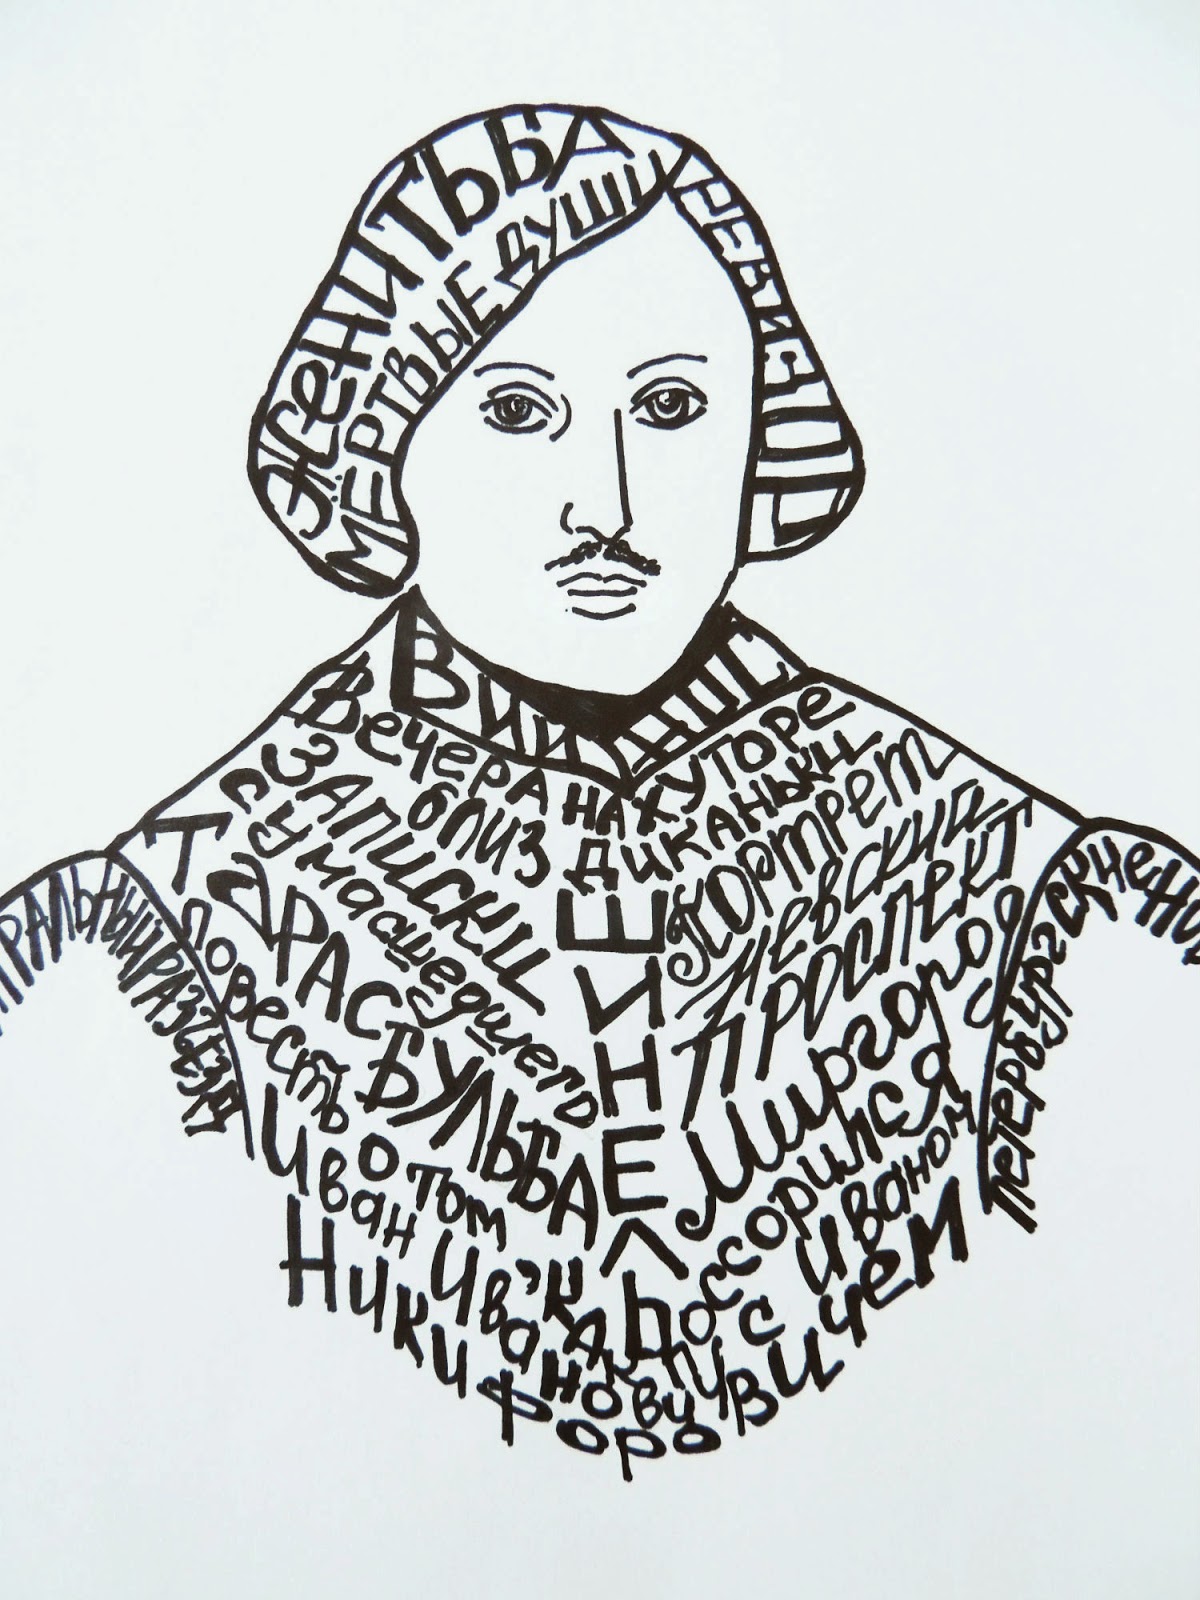 ЖЕНИТЬБА
МЁРТВЫЕ ДУШИ
РЕВИЗОР
ВИЙ
НОС
Вечера на хуторе
близ Диканьки
ЗАПИСКИ
сумасшедшего
ТАРАС БУЛЬБА
ШИНЕЛЬ
Портрет
Невский
ПРОСПЕКТ
Миргород
Повесть о том, как поссорился
Иван Иванович с Иваном
Никифоровичем
ТРАЛЬНЫЙ РАЗЪЕЗД
ПЕТЕРБУРГСКИЕ